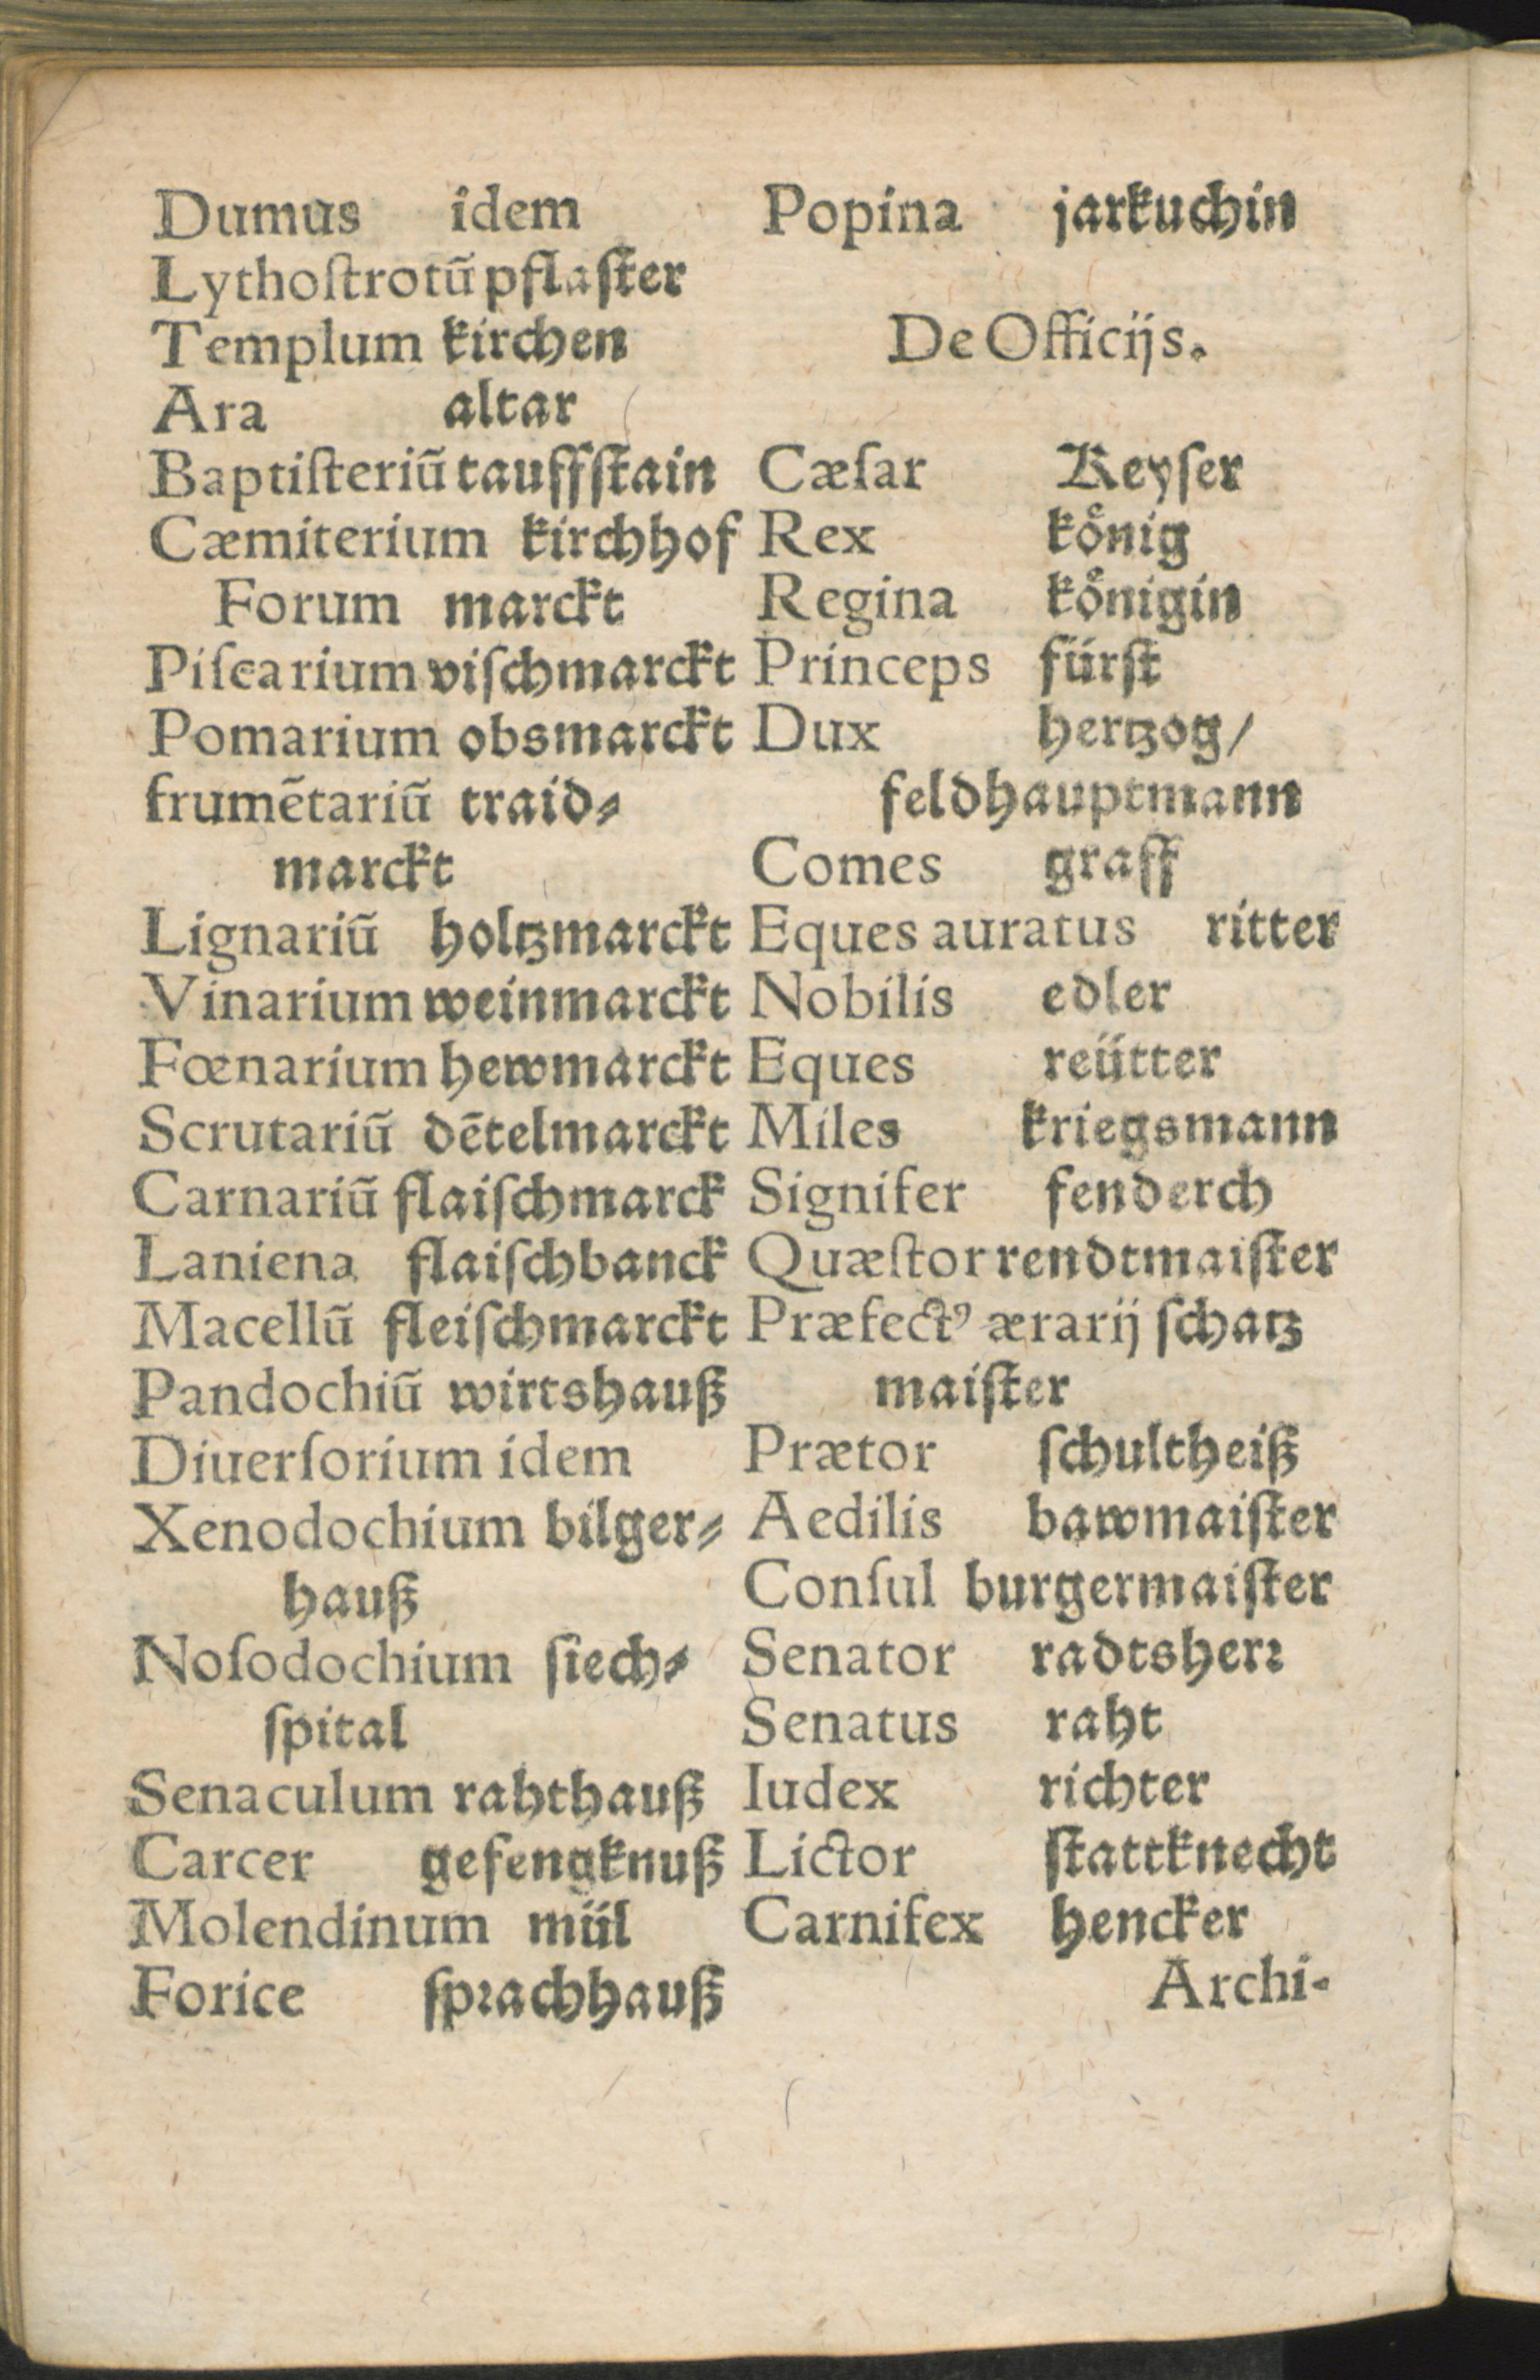 Dumus idem
Lythoſtrotũ pflaſter
Templum kirchen
Ara altar
Baptiſteriũ tauffſtain
Cæmiterium kirchhof
Forum marckt
Piſcarium viſchmarckt
Pomarium obsmarckt
frumẽtariũ traid⸗
marckt
Lignariũ holtzmarckt
Vinarium weinmarckt
Fœnarium hewmarckt
Scrutariũ dẽtelmarckt
Carnariũ flaiſchmarck
Laniena flaiſchbanck
Macellũ fleiſchmarckt
Pandochiũ wirtshauß
Diuerſorium idem
Xenodochium bilger⸗
hauß
Noſodochium ſiech⸗
ſpital
Senaculum rahthauß
Carcer gefengknuß
Molendinum mül
Forice ſpꝛachhauß
Popina jarkuchin
De Officijs.
Cæſar Keyſer
Rex koͤnig
Regina koͤnigin
Princeps fürſt
Dux hertzog/
feldhauptmann
Comes graff
Eques auratus ritter
Nobilis edler
Eques reütter
Miles kriegsmann
Signifer fenderch
Quæſtor rendtmaiſter
Præfectꝰ ærarij ſchatz
maiſter
Prætor ſchultheiß
Aedilis bawmaiſter
Conſul burgermaiſter
Senator radtsherꝛ
Senatus raht
Iudex richter
Lictor ſtattknecht
Carnifex hencker
Archi-